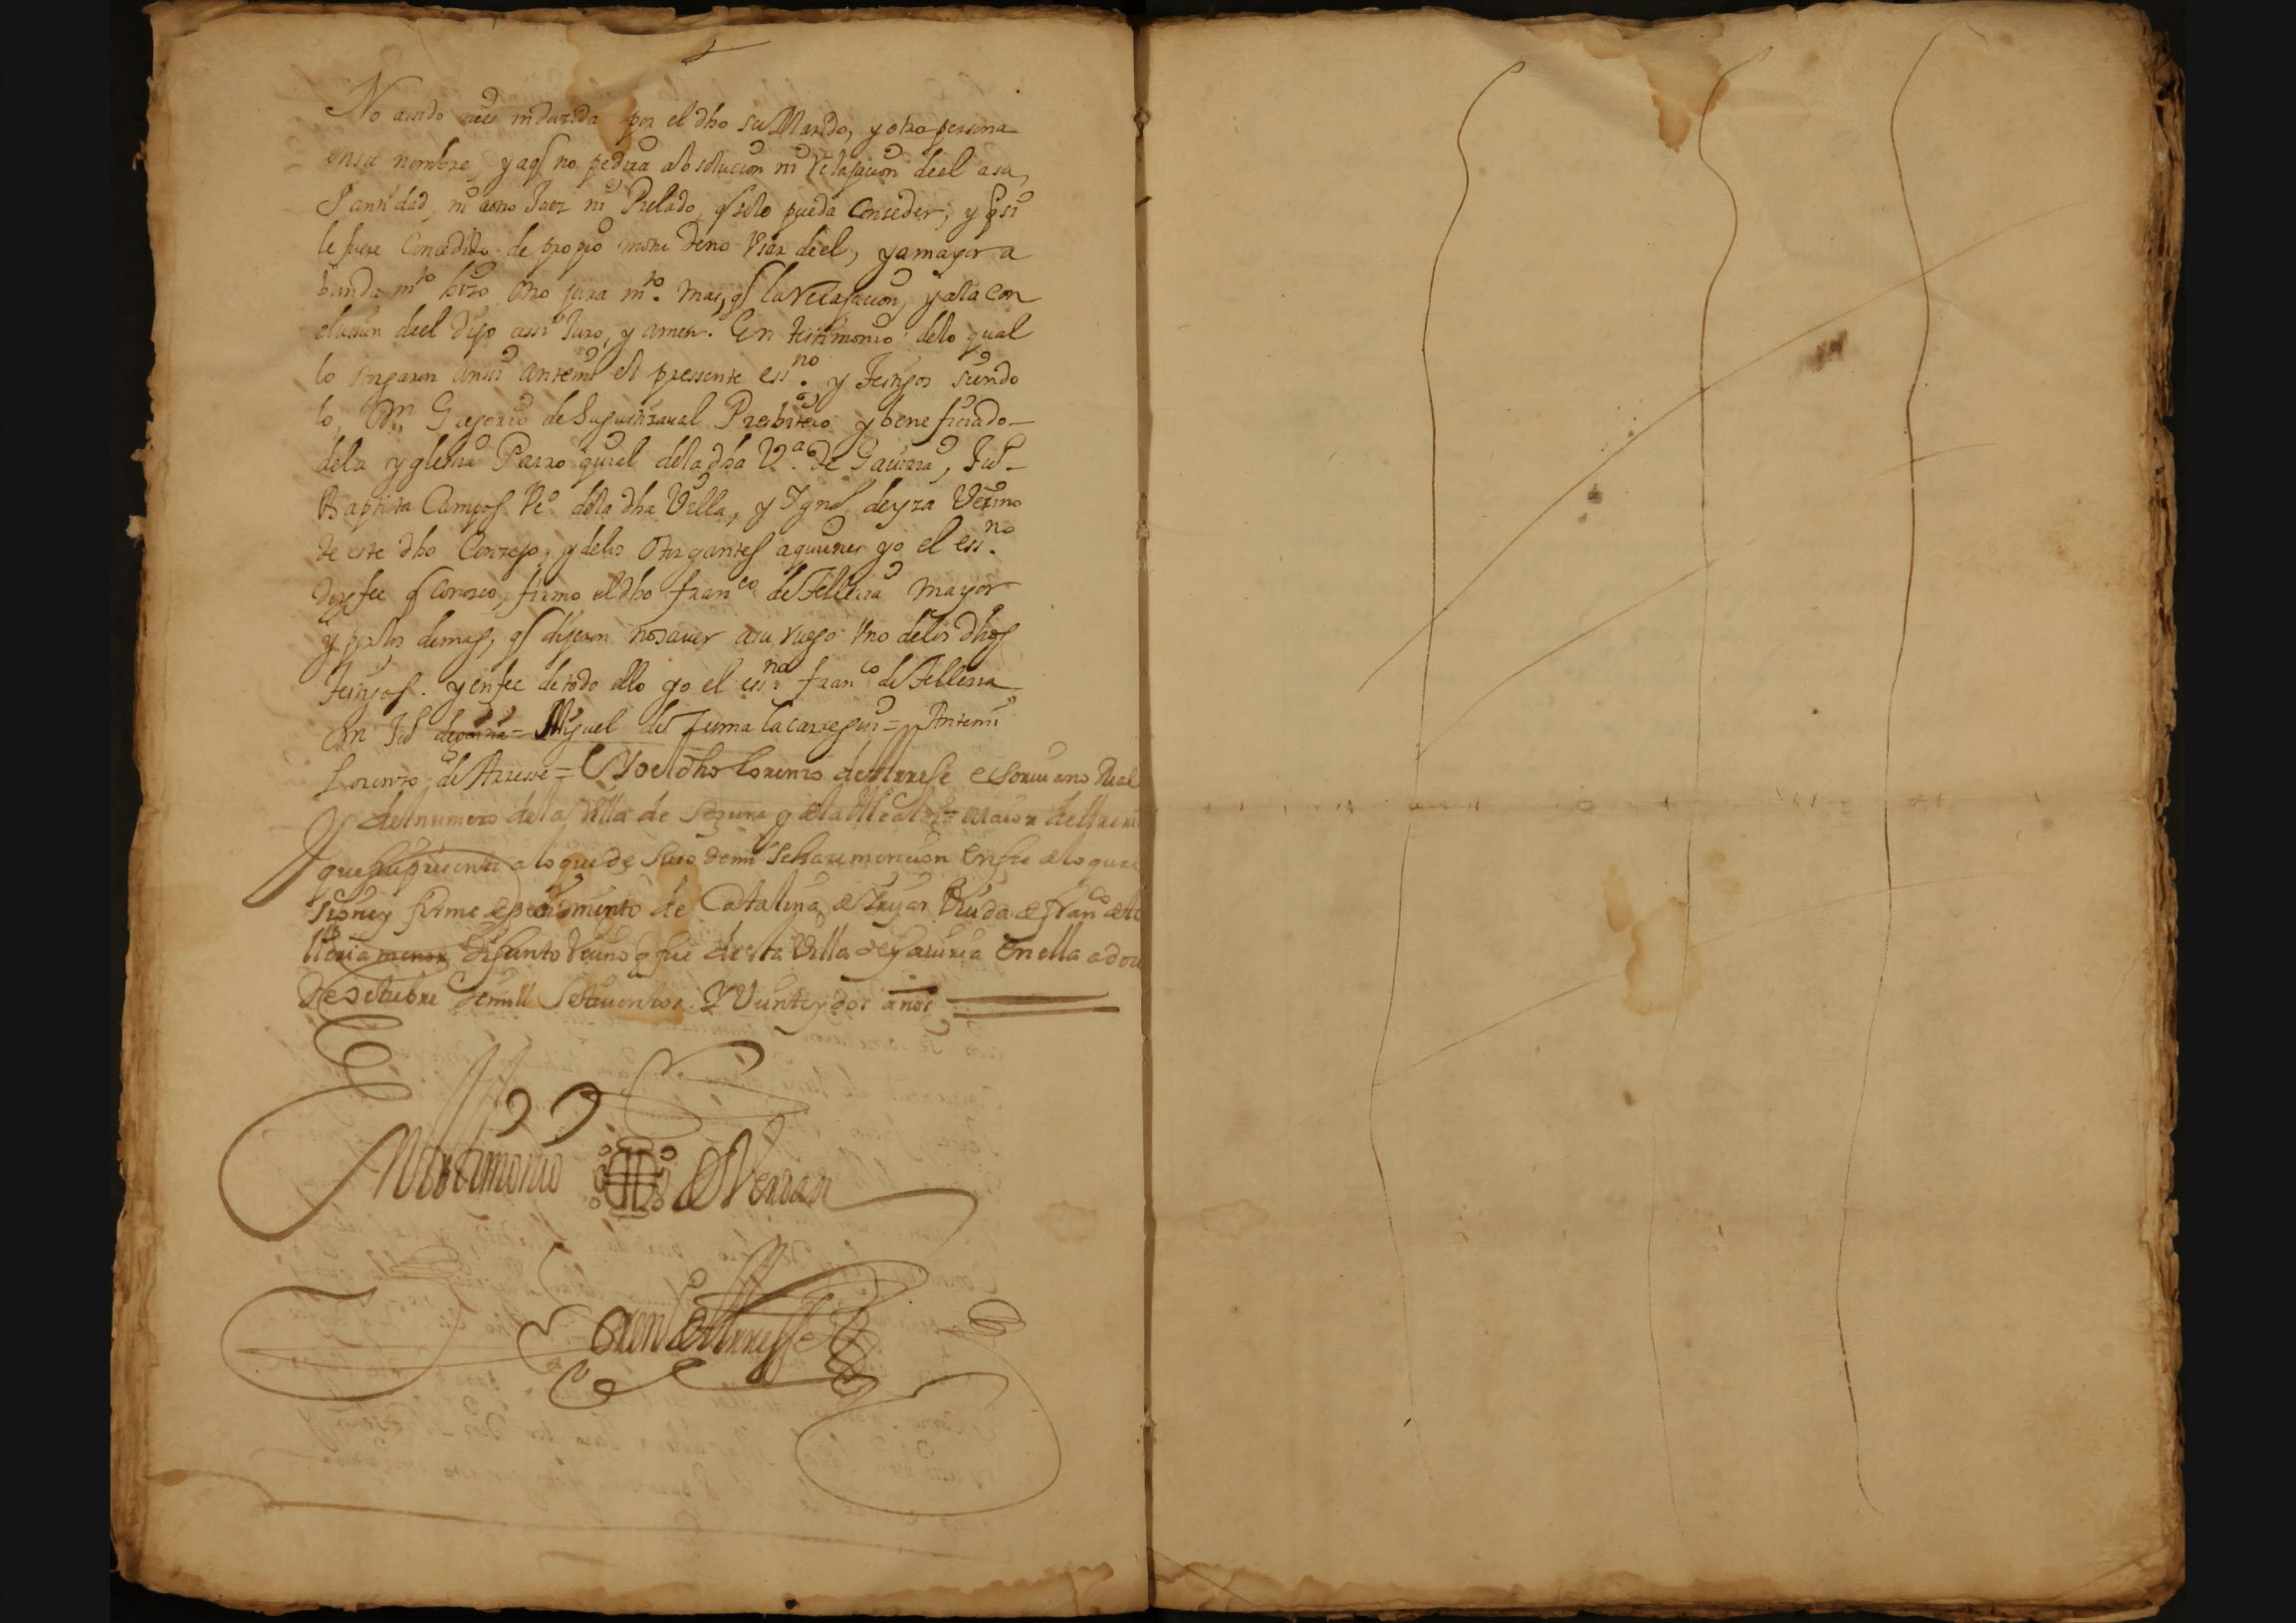 No auido sido induzida por el dho su Marido, y otra persona
en su nombre, y aql no pedira absolucion ni relajacion deel asu
Santidad, ni a otro Juez ni Prelado, ql selo pueda Conceder, y ql si
le fuere Concedido de propio motu deno Usar deel, y a mayor a
bunda mto hizo otro jura mto. mas, ql la relajacion, y ala con
clusion deel dijo assi Juro, y amen. En testimonio delo qual
lo otorgaron ansi ante mi el pressente essno. y testigos siendo
lo, Dn. Gregorio de Presbitero y beneficiado
dela yglesia Parroquial dela dha Va. de Gauiria, Jul
Baptista Campos Ve. dela dha Villa, y Ygno. deyza Vezino
de este dho Conzejo, y delos Otorgantes a quienes yo el essno.
doy fee ql conozco, firmo el dho franco de Telleria mayor
y por los demas, ql dijeron no sauer a su ruego Uno delos dhos
testigos. y en fee de todo ello yo el essno. franco de Telleria
Miguel de Zumalacarregui = Ante mi
Lorenzo de Arrese = Yo el dho Lorenzo de Arrese escriuano Real
del numero dela Villa de Segura y dela Alcaldia maior de
que fui presente a lo que de suso de mi se haze mencion en fee delo qual
signe y firme de pedimento de Catalina de Viuda de franco de Te
lleria menor difunto Vezino q fue de esta Villa de Gauiria en ella a doze
de octubre de mill Setecientos Y Veinte y dos años
En testimonio de Verdad
Lorenzo de Arresse